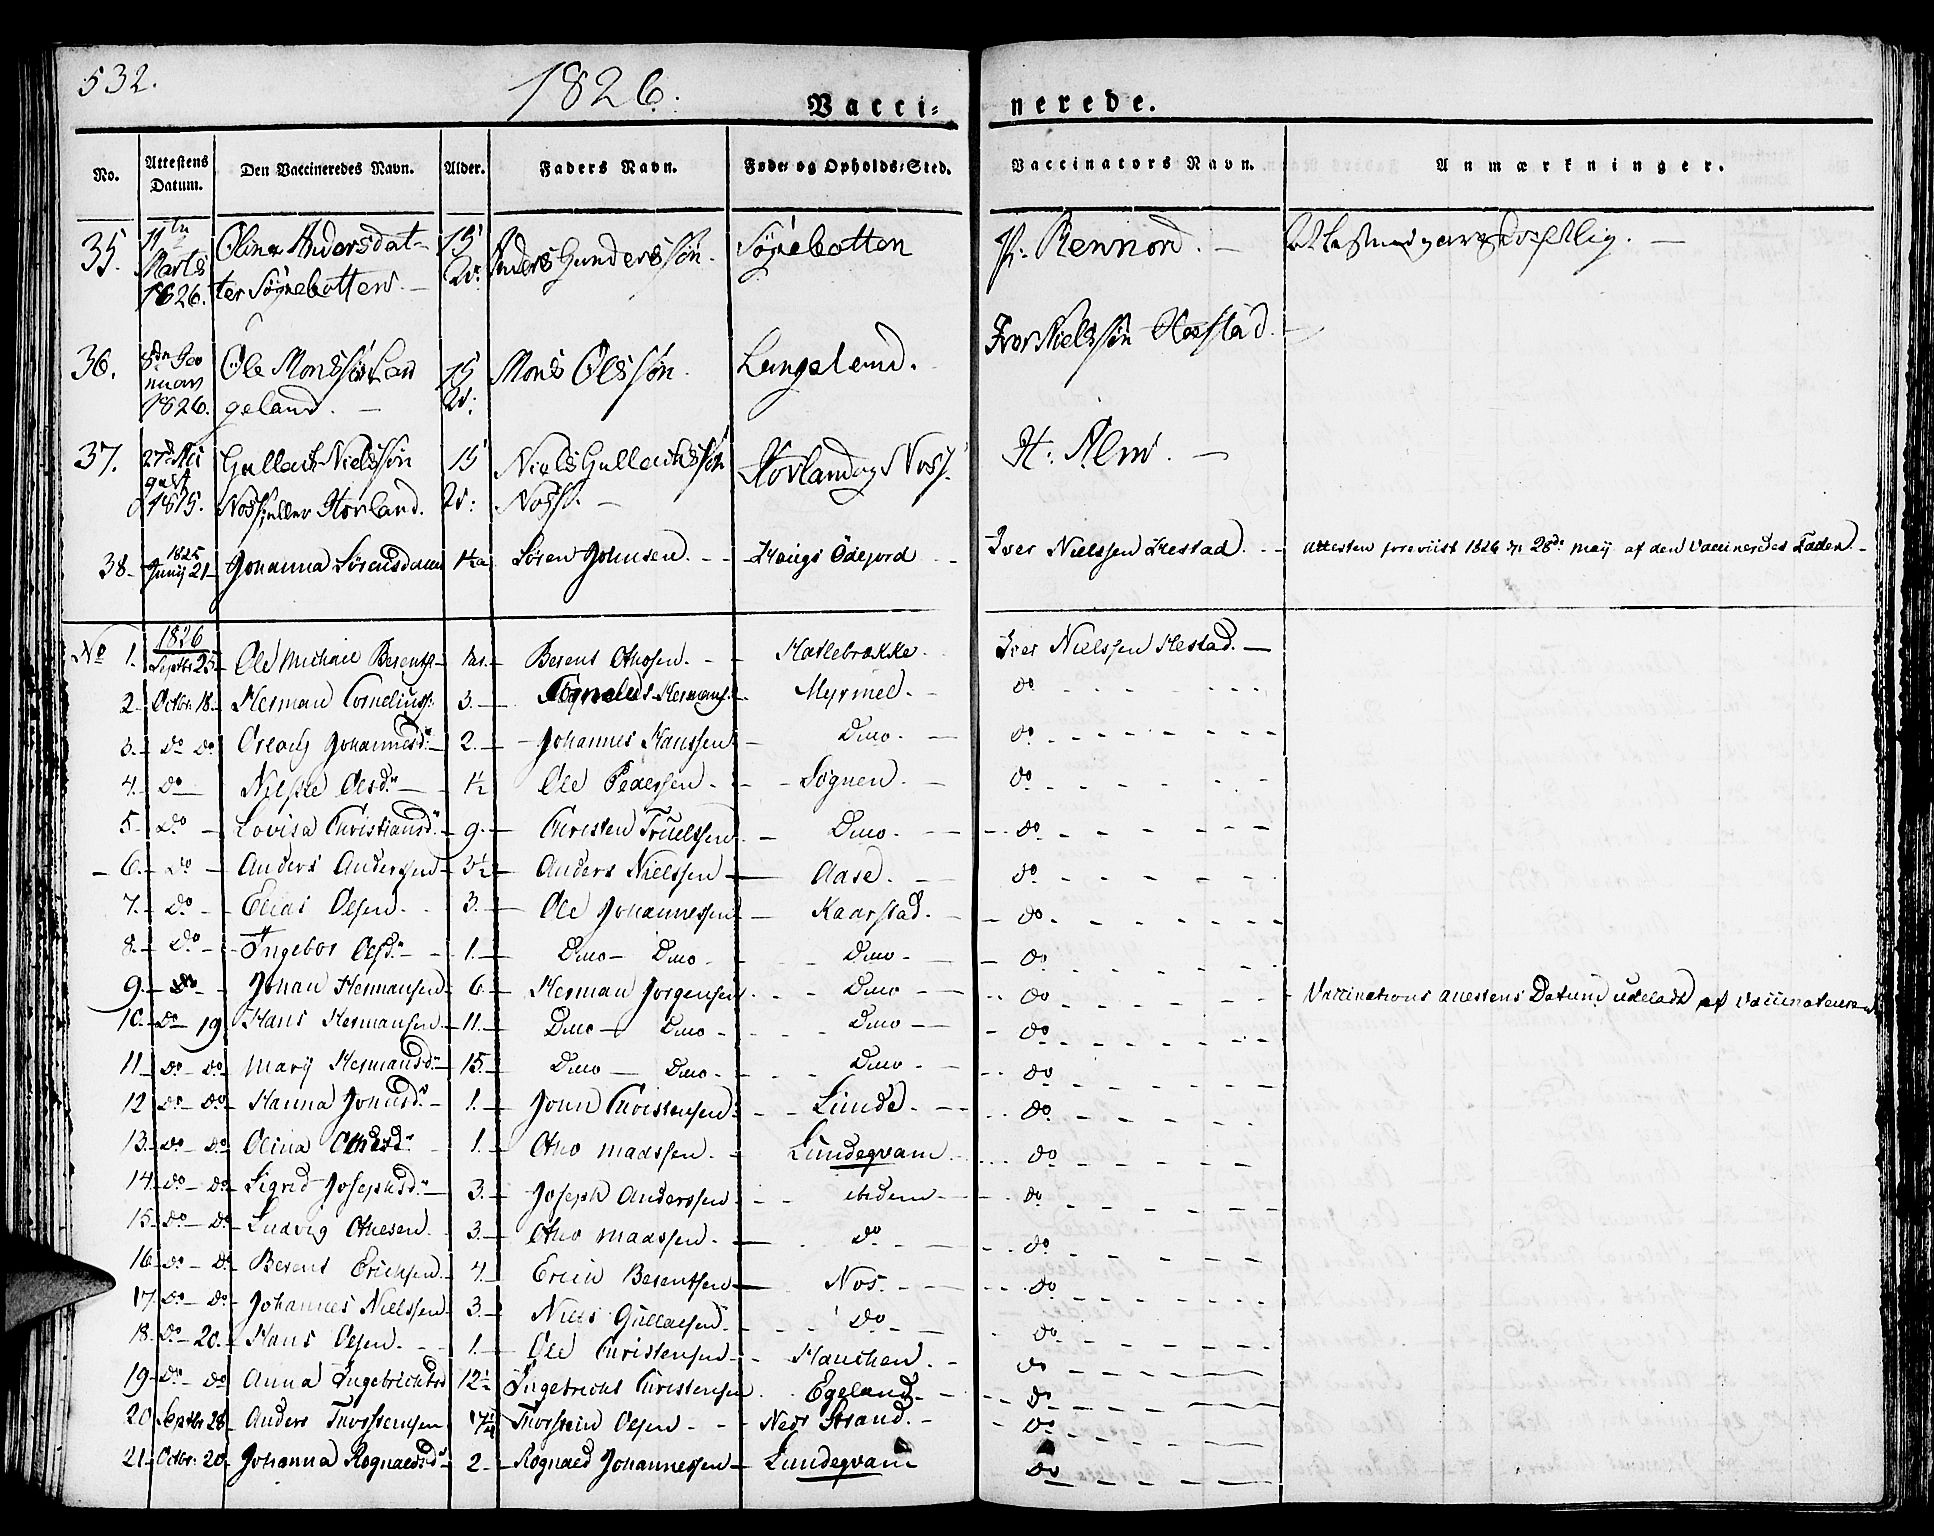 532.
1826.
Vacci-nerede.
No. Attestens Datum. Den Vaccineredes Navn. Alder. Faders Navn. Føde- og Opholds-Sted. Vaccinators Navn. Anmærkninger.
35. 11te Marts 1826. Olina Andersdatter Søgnebotten. 15 Anders Gunderssøn. Søgnebotten Rennord.
36. 8de Januar 1826. Ole Monssøn Langeland. 15 Mons Olssøn. Langeland. Iver Nielssøn Hestad.
37. 1815. Gullach Nielssøn Noss eller Horland. 15 Niels Gullachssøn Noss. Horland og Noss. H. Alm.
38. 1825 Junij 21 Johanna Sørensdatter Søren Johnsen. Iver Nielssen Hestad. Attesten foreviist 1826 28de Maij af den Vaccineredes Fader.
No 1. 1826 Septbr 25 Ole Michael Berents. Berent Othosen. Haslebrække. Iver Nielssen Hestad.
2. Octbr. 18. Herman Corneliuss. 3. Cornelius Hermans. Myrmel. do
3. do do Johannesd. 2. Johannes Hanssen Ditto. do
4. do Olsd. 1½ Ole Pedersen. Søgnen. do
5. do Lovisa Christiansd. 9. Christen Truelssen Ditto. do
6. do Anders Andersen 3½ Anders Nielssen Aase. do
7. do Elias Olsen. 3. Ole Johannessen Kaarstad. do
8. do Ingebor Olsd. 1. Ditto Ditto Ditto do
9. do Johan Hermansen 6. Herman Jørgensen Ditto do Vaccinations Attestens Datum udeladt af Vaccinateuren
10. do 19 Hans Hermansen 11. Ditto Ditto Ditto do
11. do do Marij Hermansd. 15. Ditto Ditto. Ditto do
12 do do Hanna Jonsd. 1. John Christensen. Lunde. do
13. do do Olina Othosd. 1. Otho Madssen. Lundeqvam do
14. do do Sigrid Josephsd. 3. Joseph Anderssen ibidem do
15. do do Ludvig Othesen. 3. Otho Madssen. do do
16. do do Berent Erichsen. 4. Erich Berentsen Nos. do
17. do do Johannes Nielssen 3. Niels Gullacsen. do do
18. do 20. Hans Olsen. 1. Ole Christensen do
19. do do Anna Ingebrichtsd 12½ Ingebricht Christensen Egeland. do
20 Septbr 28 Anders Thorstensen Thorstein Olsen Nedr Strand. do
21. Octbr: 20 Johanna Rognaldsd. 2. Rognald Johannessen Lundeqvam do